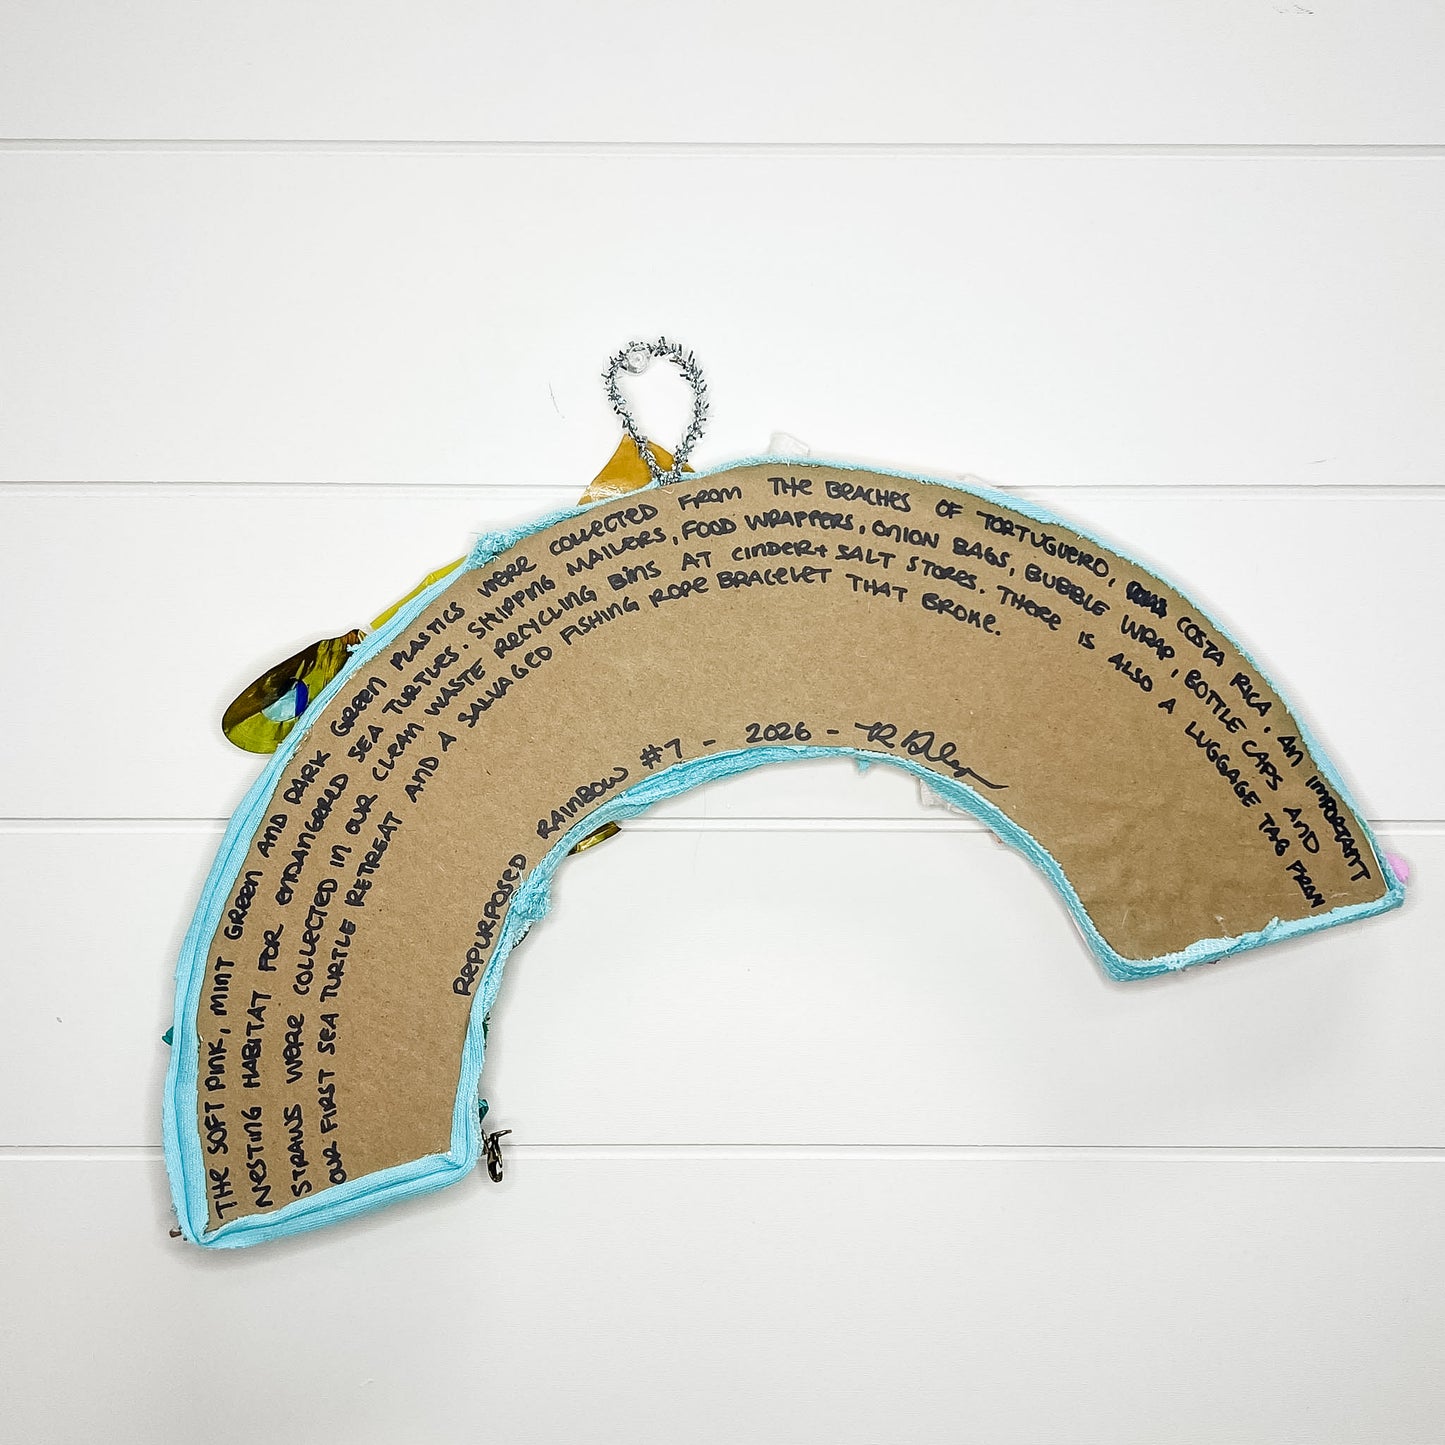 THE SOFT PINK, MINT GREEN AND DARK GREEN PLASTICS WERE COLLECTED FROM THE BEACHES OF TORTUGUERO, COSTA RICA, AN IMPORTANT
NESTING HABITAT FOR ENDANGERED SEA TURTLES. SHIPPING MAILERS, FOOD WRAPPERS, ONION BAGS, BUBBLE WRAP, BOTTLE CAPS AND
STRAWS WERE COLLECTED IN OUR CLEAN WASTE RECYCLING BINS AT CINDER + SALT STORES. THERE IS ALSO A LUGGAGE TAG FROM
OUR FIRST SEA TURTLE RETREAT AND A SALVAGED FISHING ROPE BRACELET THAT BROKE.
REPURPOSED RAINBOW #7 - 2026 -